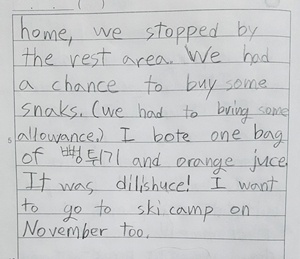 home, we stopped by
the rest area. We had
a chance to buy some
snaks. (we had to bring some
allowance.) I bote one bag
of 뻥튀기 and orange juce.
It was dilishuce! I want
to go to ski camp on
November too.